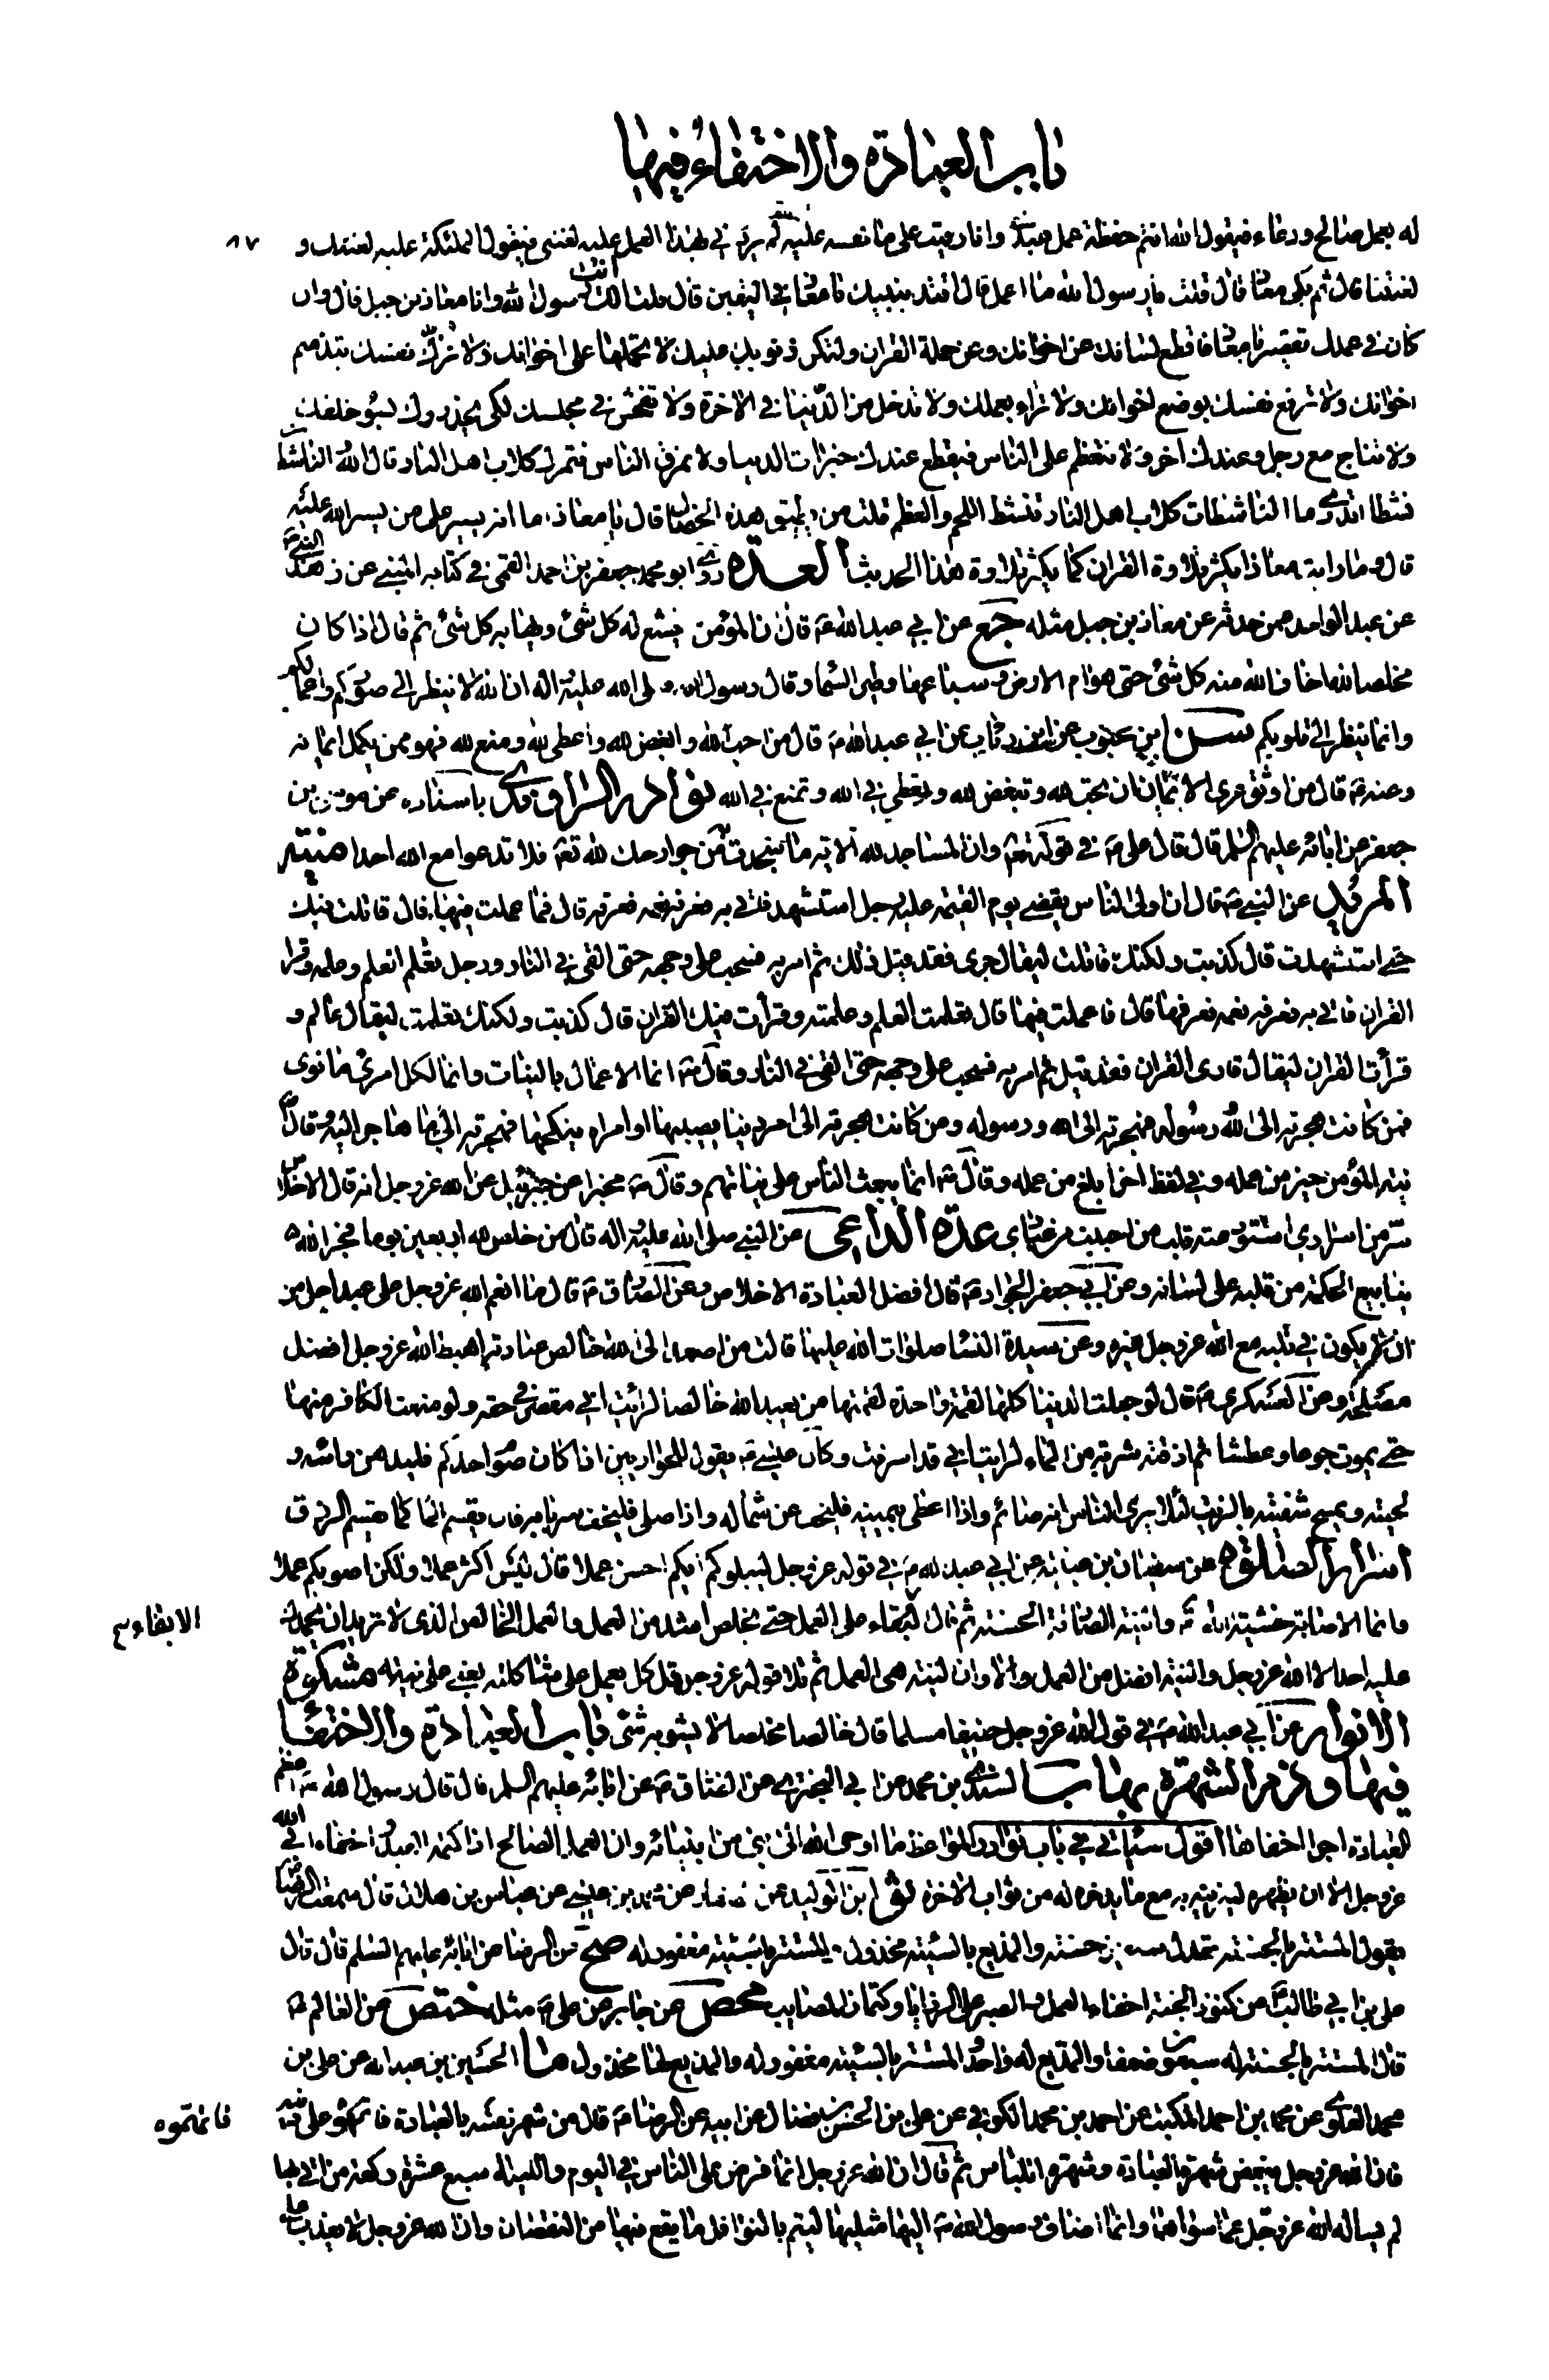 باب العبادة والاختفاء فيها
له بعمل صالح ودعاء فيقول الله انتم حفظة عمل عبدي وانا رقيب على ما نفسه عليه لم يردني بهذا العمل عليه لعنتي فيقول الملئكة عليه لعنتك و
٨٧
لعنتنا قال ثم بكى معاذ قال قلت يا رسول الله ما اعمل قال اقتد بنبيك يا معاذ في اليقين قال قلت انت رسول الله وانا معاذ بن جبل قال وان
كان في عملك تقصير يا معاذ فاقطع لسانك عن اخوانك وعن حملة القران ولتكن ذنوبك عليك لا تحملها على اخوانك ولا تزك نفسك بتذميم
اخوانك ولا ترفع نفسك بوضع اخوانك ولا تراء بعملك ولا تدخل من الدنيا في الاخرة ولا تفحش في مجلسك لكي يحذروك لسوء خلقك
ولا تناج مع رجل وعندك اخر ولا تتعظم على الناس فيقطع عنك خيرات الدنيا ولا تمزق الناس فتمزقك كلاب اهل النار قال الله والناشطات
نشطا اتدري ما الناشطات كلاب اهل النار تنشط اللحم والعظم قلت من يطيق هذه الخصال قال يا معاذ اما انه يسير على من يسر الله عليه
قال وما رايت معاذا يكثر تلاوة القران كما يكثر تلاوة هذا الحديث العدة روى ابو محمد جعفر بن احمد القمي في كتابه المنبئ عن زهد النبي
عن عبد الواحد عمن حدثه عن معاذ بن جبل مثله جع عن ابي عبد الله ع قال ان المؤمن يخشع له كل شئ ويهابه كل شئ ثم قال اذا كان
مخلصا لله اخاف الله منه كل شئ حتى هوام الارض وسباعها وطير السماء وقال رسول الله صلى الله عليه واله ان الله لا ينظر الى صوركم واعمالكم
وانما ينظر الى قلوبكم سن ابن محبوب عن ابن رئاب عن ابي عبد الله ع قال من احب لله وابغض لله واعطى لله ومنع لله فهو ممن يكمل ايمانه
وعنه ع قال من اوثق عرى الايمان ان تحب لله وتبغض لله وتعطي في الله وتمنع في الله نوادر الراوندي باسناده عن موسى بن
جعفر عن ابائه عليهم السلم قال قال على ع في قوله تعه وان المساجد لله الاية ما سجدت به من جوارحك لله تعه فلا تدعوا مع الله احدا منية
المريد عن النبي ص قال ان اول الناس يقضى يوم القيمة عليه رجل استشهد فاتي به فعرفه نعمه فعرفها قال فما عملت فيها قال قاتلت فيك
حتى استشهدت قال كذبت ولكنك قاتلت ليقال جرى فقد قيل ذلك ثم امر به فسحب على وجهه حتى القي في النار ورجل تعلم العلم وعلمه وقرأ
القران فاتي به فعرفه نعمه فعرفها قال فما عملت فيها قال تعلمت العلم وعلمته وقرأت فيك القران قال كذبت ولكنك تعلمت ليقال عالم و
قرأت القران ليقال قارى القران فقد قيل ثم امر به فسحب على وجهه حتى القي في النار وقال ص انما الاعمال بالنيات وانما لكل امرئ ما نوى
فمن كانت هجرته الى الله ورسوله فهجرته الى الله ورسوله ومن كانت هجرته الى امر دنيا يصيبها او امراة ينكحها فهجرته الى ما هاجر اليه وقال ص
نية المؤمن خير من عمله وفي لفظ اخر ابلغ من عمله وقال ص انما يبعث الناس على نياتهم وقال ص مخبرا عن جبرئيل عن الله عز وجل انه قال الاخلاص
سر من اسراري استودعته قلب من احببت من عبادي عدة الداعي عن النبي صلى الله عليه واله قال من خلص لله اربعين يوما فجر الله
ينابيع الحكمة من قلبه على لسانه وعن ابي جعفر الجواد ع قال افضل العبادة الاخلاص وعن الصادق ع قال ما انعم الله عز وجل على عبد اجل من
ان لا يكون في قلبه مع الله عز وجل غيره وعن سيدة النساء صلوات الله عليها قالت من اصعد الى الله خالص عبادته اهبط الله عز وجل افضل
مصلحته وعن العسكرى ع قال لو جعلت الدنيا كلها لقمة واحدة لقمتها من يعبد الله خالصا لرأيت اني مقصر في حقه ولو منعت الكافر منها
حتى يموت جوعا وعطشا ثم اذقته شربة من الماء لرايت اني قد اسرفت وكان عيسى ع يقول للحواريين اذا كان صوم احدكم فليدهن راسه و
لحيته ويمسح شفتيه بالزيت لئلا يرى الناس انه صائم واذا اعطى بيمينه فليخف عن شماله واذا صلى فليرخ ستر بابه فان الله يقسم الثناء كما يقسم الرزق
اسرار الصلوة عن سفيان بن عيينة عن ابي عبد الله ع في قوله عز وجل ليبلوكم ايكم احسن عملا قال ليس اكثر عملا ولكن اصوبكم عملا
وانما الاصابة خشية الله تع والنية الصادقة الحسنة ثم قال البقاء على العمل حتى يخلص اشد من العمل والعمل الخالص الذى لا تريد ان يحمدك
الابقاء م
عليه احد الا الله عز وجل والنية افضل من العمل الا وان النية هى العمل ثم تلا قوله عز وجل قل كل يعمل على شاكلته يعني على نيته مشكوة
الانوار عن ابي عبد الله ع في قول الله عز وجل حنيفا مسلما قال خالصا مخلصا لا يشوبه شئ باب العبادة والاختفاء
فيها وذم الشهرة بها ب السندي بن محمد عن ابي البختري عن الصادق ع عن ابائه عليهم السلم قال قال رسول الله ص اعظم
العبادة اجرا اخفاها اقول سياتي في باب نوادر المواعظ ما اوحى الله الى نبي من انبيائه وان العمل الصالح اذا كتمه العبد واخفاه ابى الله
عز وجل الا ان يظهره ليزينه به مع ما يدخره له من ثواب الاخرة ثو ابن الوليد عن الصفار عن محمد بن عيسى عن عباس بن هلال قال سمعت الرضا ع
يقول المستتر بالحسنة تعدل سبعين حسنة والمذيع بالسيئة مخذول والمستتر بالسيئة مغفور له صح عن الرضا عن ابائه عليهم السلم قال قال
على بن ابي طالب ع من كنوز الجنة اخفاء العمل والصبر على الرزايا وكتمان المصايب محص عن جابر عن على ع مثله ختص عن العالم ع
قال المستتر بالحسنة له سبعون ضعفا والمذيع له واحد والمستتر بالسيئة مغفور له والمذيع لها مخذول ما الحسين بن عبد الله عن على بن
محمد العلوى عن محمد بن احمد المكتب عن احمد بن محمد الكوفي عن على بن الحسن بن فضال عن ابيه عن الرضا ع قال من شهر نفسه بالعبادة فاتهموه على دينه
فاتهموه
فان الله عز وجل يبغض شهرة العبادة وشهرة اللباس ثم قال ان الله عز وجل انما فرض على الناس في اليوم والليلة سبع عشرة ركعة من اتى بها
لم يساله الله عز وجل عما سواها وانما اضاف رسول الله ص اليها مثليها ليتم بالنوافل ما يقع فيها من النقصان وان الله عز وجل لا يعذب على